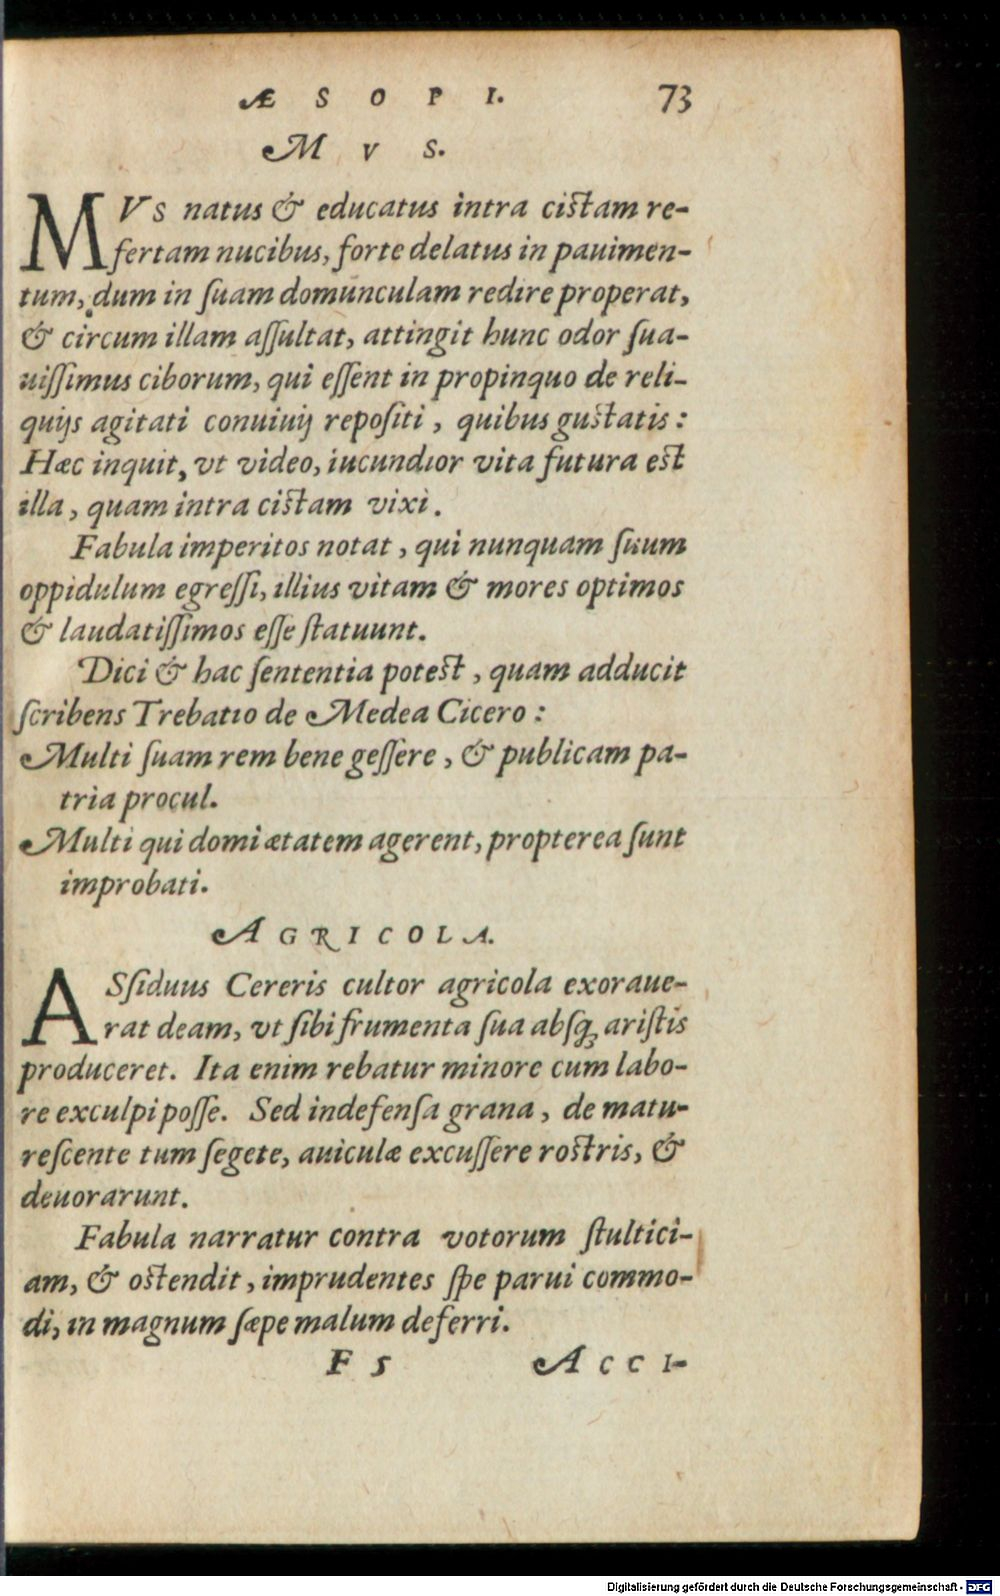 ÆSOPI. 73
MVS.
MVs natus & educatus intra cistam re-
fertam nucibus, forte delatus in pauimen-
tum, dum in ſuam domunculam redire properat,
& circum illam aſſultat, attingit hunc odor ſua-
uiſſimus ciborum, qui eſſent in propinquo de reli-
quijs agitati conuiuij repoſiti, quibus gustatis:
Hæc inquit, vt video, iucundior vita futura est
illa, quam intra cistam vixi.
Fabula imperitos notat, qui nunquam ſuum
oppidulum egreſſi, illius vitam & mores optimos
& laudatiſſimos eſſe ſtatuunt.
Dici & hac ſententia potest, quam adducit
ſcribens Trebatio de Medea Cicero:
Multi ſuam rem bene geſſere, & publicam pa-
tria procul.
Multi qui domi ætatem agerent, propterea ſunt
improbati.
AGRICOLA.
ASſiduus Cereris cultor agricola exoraue-
rat deam, vt ſibi frumenta ſua absq; ariſtis
produceret. Ita enim rebatur minore cum labo-
re exculpi poſſe. Sed indefenſa grana, de matu-
reſcente tum ſegete, auiculæ excuſſere rostris, &
deuorarunt.
Fabula narratur contra votorum ſtultici-
am, & ostendit, imprudentes ſpe parui commo-
di, in magnum ſæpe malum deferri.
F 5 ACCI-
Digitalisierung gefördert durch die Deutsche Forschungsgemeinschaft - DFG